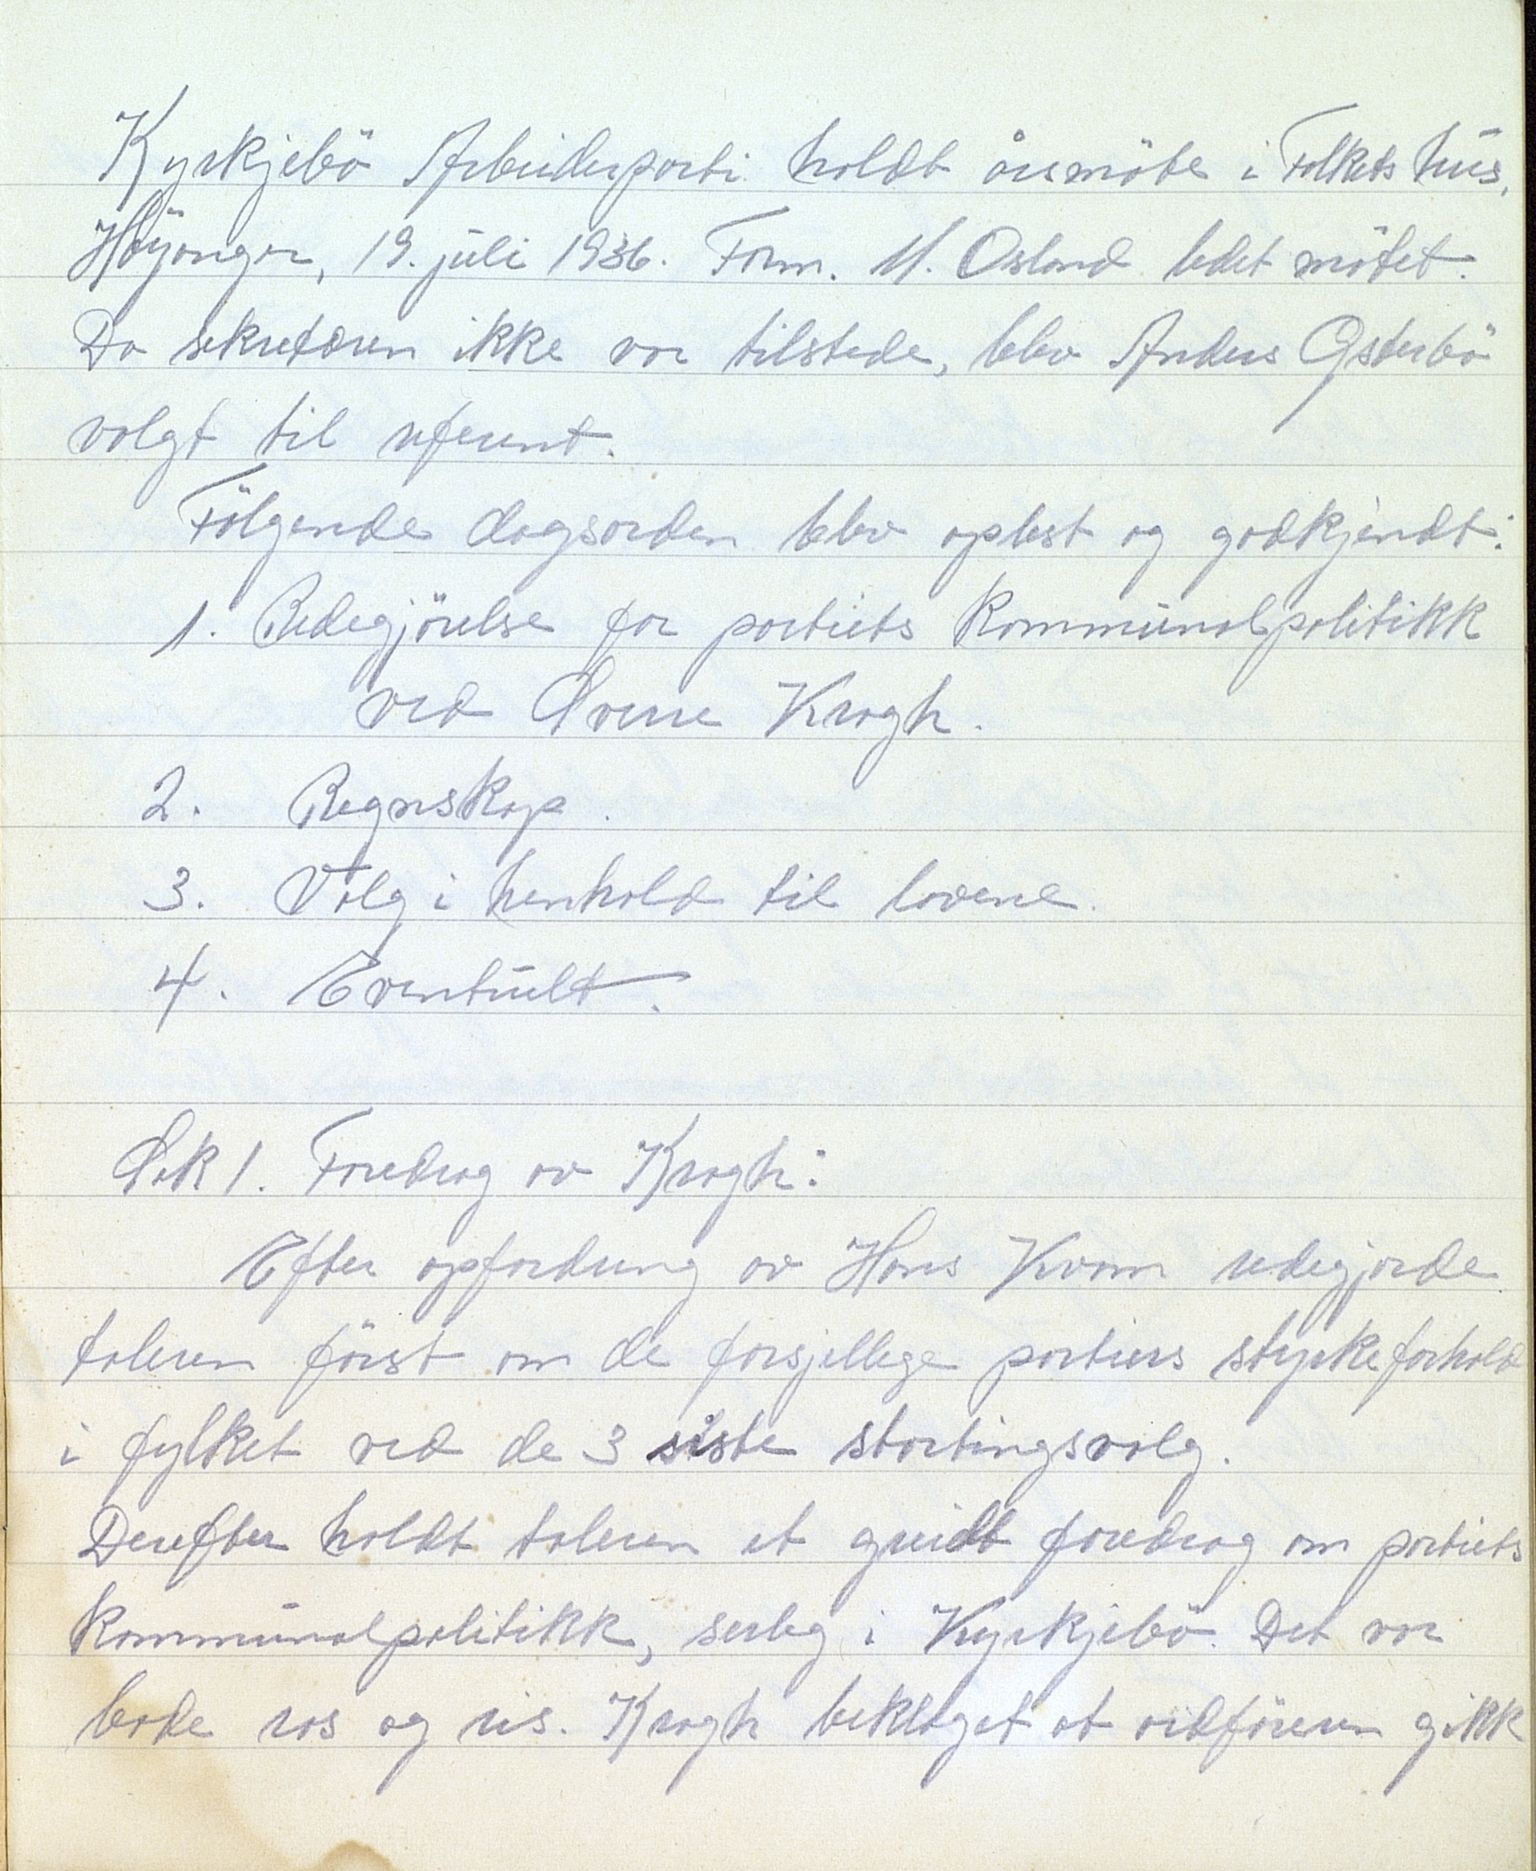 Kyrkjebö Arbeiderparti holdt årsmöte i Folkets hus,
Höyanger, 19. juli 1936. Form. M. Osland ledet mötet.
Da sekretæren ikke var tilstede, blev Anders Østerbö
valgt til referent.
Fölgende dagsorden blev oplest og godkjendt:
1. Redegjörelse for partiets kommunalpolitikk
ved Sverre Krogh.
2. Regnskap.
3. Valg i henhold til lovene.
4. Eventuelt.
Sak 1. Foredrag av Krogh:
Efter opfordring av Hans Kvam redegjorde
taleren först om de forsjellege partiers styrkeforhold
i fylket ved de 3 siste stortingsvalg.
Derefter holdt taleren et greidt foredrag om partiets
kommunalpolitikk, serleg i Kyrkjebö. Det var
både ros og ris. Krogh beklaget at ordföreren gikk